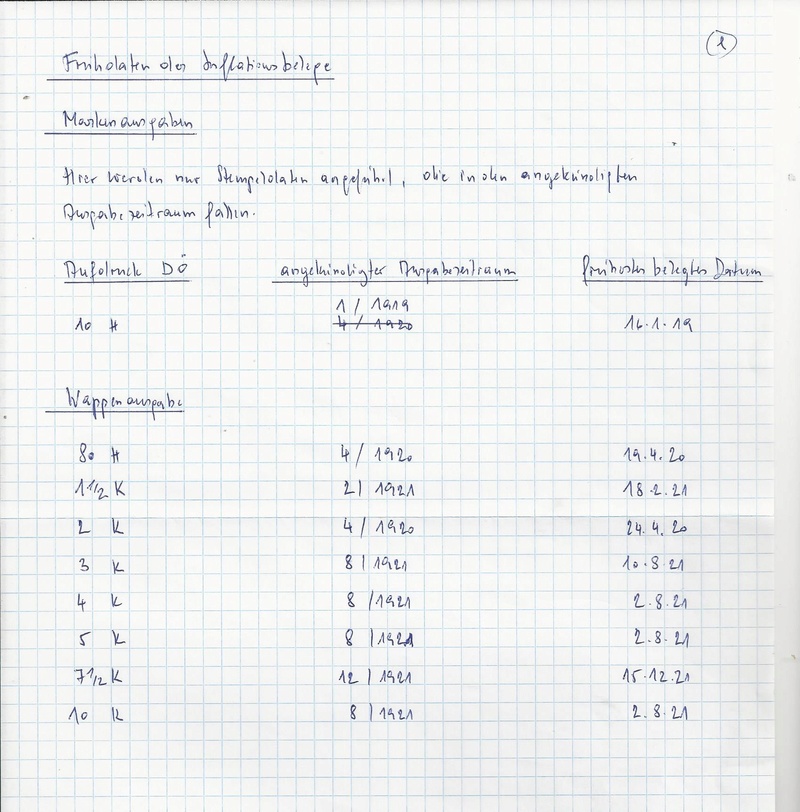 1
Frühdaten der Inflationsbelege
Markenausgaben
Hier werden nur Stempeldaten angeführt, die in den angekündigten
Ausgabezeitraum fallen.
Aufdruck DÖ angekündigter Ausgabezeitraum frühestes belegtes Datum
1 / 1919
10 H 4 / 1920 16.1.19
Wappenausgabe
80 H 4 / 1920 19.4.20
1 1/2 K 2 / 1921 18.2.21
2 K 4 / 1920 24.4.20
3 K 8 / 1921 10.8.21
4 K 8 / 1921 2.8.21
5 K 8 / 1921 2.8.21
7 1/2 K 12 / 1921 15.12.21
10 K 8 / 1921 2.8.21